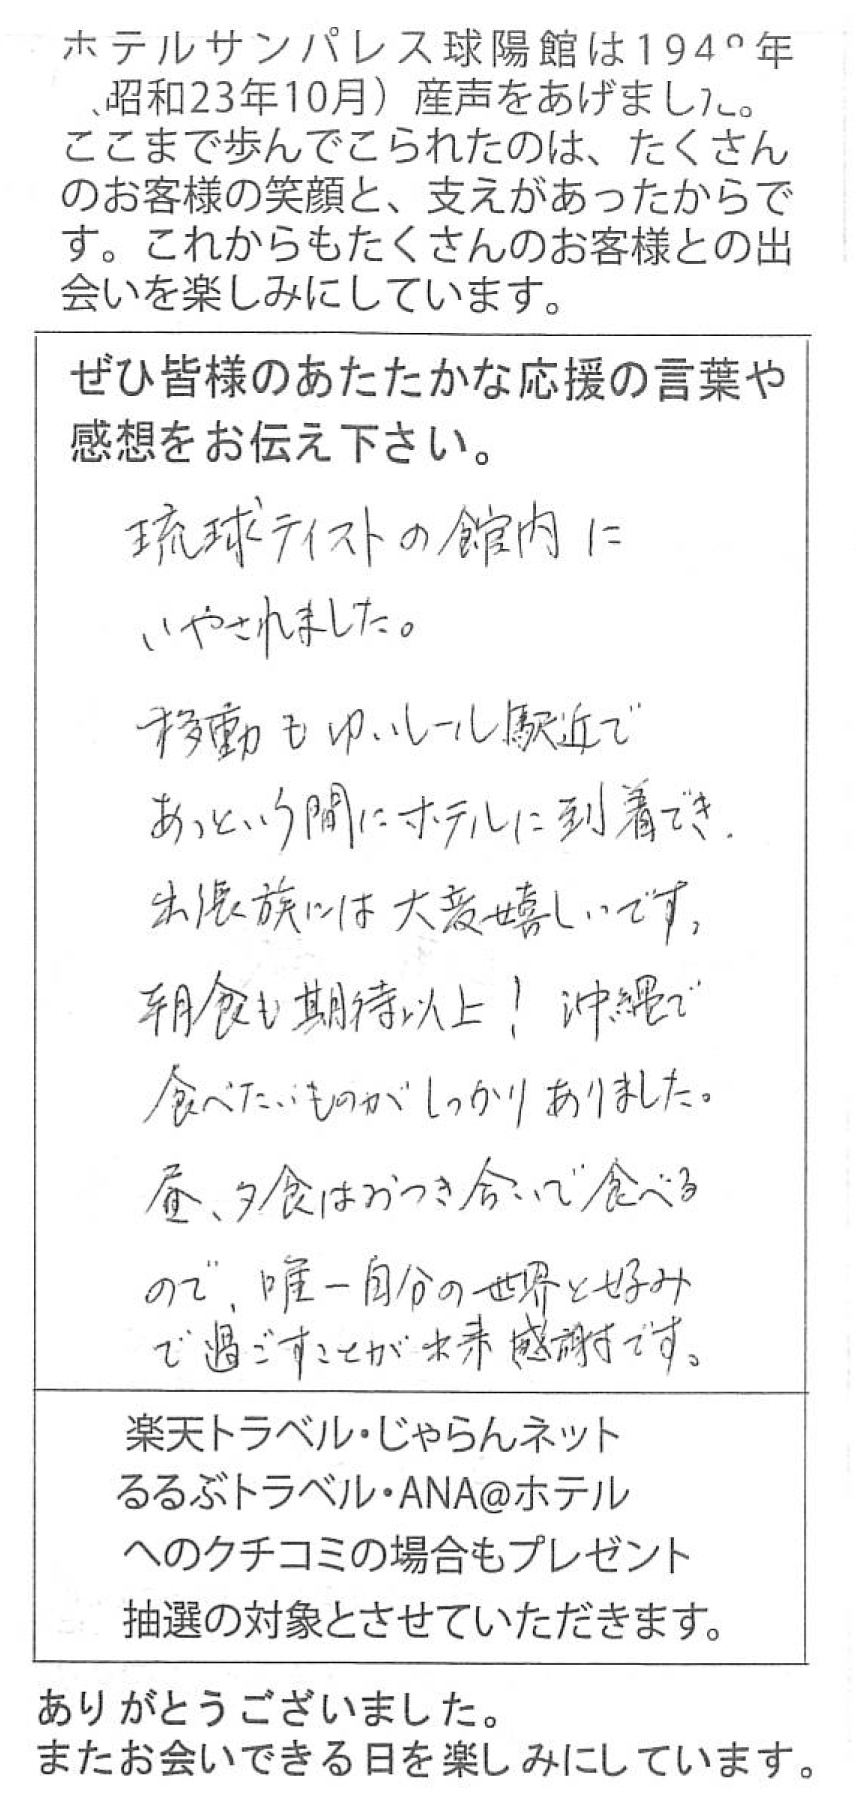 ホテルサンパレス球陽館は1948年
（昭和23年10月）産声をあげました。
ここまで歩んでこられたのは、たくさん
のお客様の笑顔と、支えがあったからで
す。これからもたくさんのお客様との出
会いを楽しみにしています。
ぜひ皆様のあたたかな応援の言葉や
感想をお伝え下さい。
琉球テイストの館内に
いやされました。
移動もゆいレール駅近で
あっという間にホテルに到着でき、
出張族には大変嬉しいです。
朝食も期待以上！沖縄で
食べたいものがしっかりありました。
昼、夕食はおつき合いで食べる
ので、唯一自分の世界と好み
で過ごすことが出来感謝です。
楽天トラベル・じゃらんネット
るるぶトラベル・ANA@ホテル
へのクチコミの場合もプレゼント
抽選の対象とさせていただきます。
ありがとうございました。
またお会いできる日を楽しみにしています。